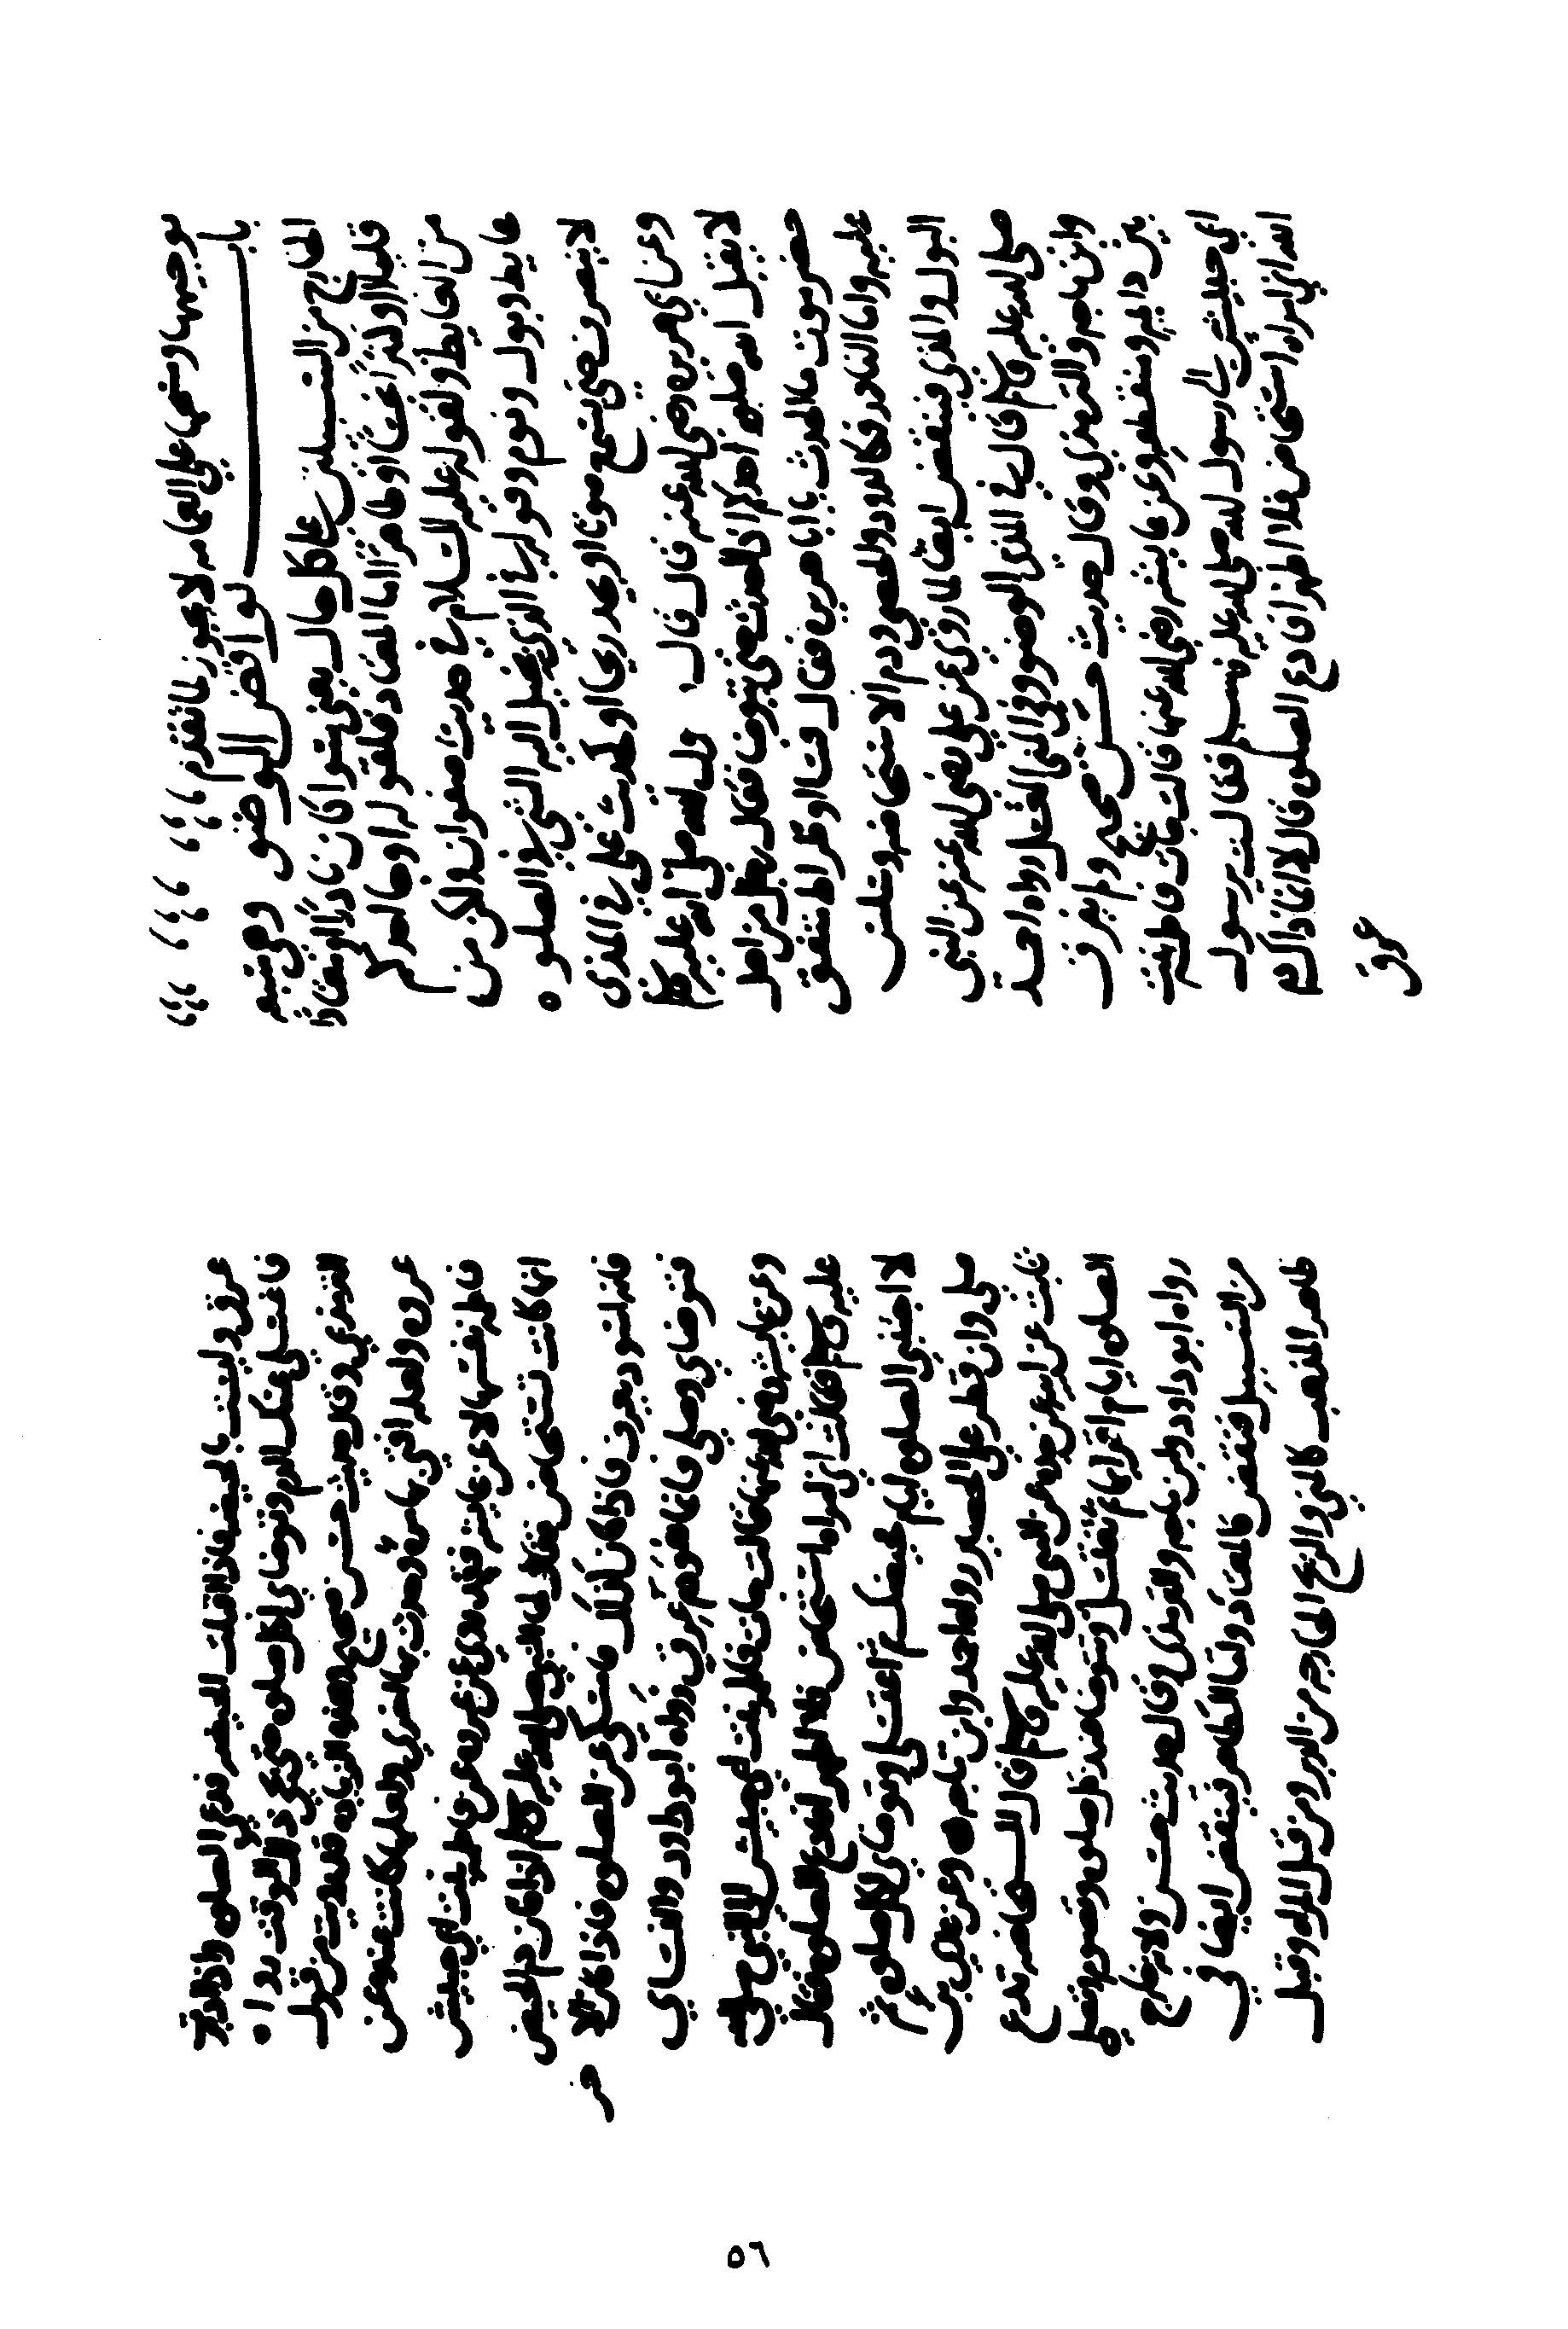 توجيهها ومسحها على العمامه لا يجوز لما تقدم
باب نواقض الوضو وهي ثمنيه
الخارج من السبيلين على كل حال يعني سوا كان نادرًا او معتادا
قليلا او كثيرًا نجسًا او طاهرًا اما المعتاد فلقوله او جا احد منكم
من الغايط ولقوله عليه السلام في حديث صفوان ولكن من
غايط وبول ونوم وقوله في الذي يخيل اليه الشي في الصلوه
لا ينصرف حتى يسمع صوتا او يجد ريحا ولحديث علي في المذي
وعن ابي هريره رضي الله عنه قال قال رسول الله صلى الله عليه وسلم
لا يقبل الله صلوه احدكم اذا احدث حتى يتوضا فقال رجل من اهل
حضرموت ما الحدث يا ابا هريره فقال فسا او ضراط متفق
عليه واما النادر فكالدود والحصى ودم الاستحاضه وسلس
البول والمذي فينقض ايضًا لما روي عن علي رضي الله عنه عن النبي
صلى الله عليه وسلم قال في المذي الوضو وفي المني الغسل رواه احمد
وابن ماجه والترمذي وقال حديث حسن صحيح ولم يفرق
بين دايمه ومنقطعه وعن عايشه رضي الله عنها قالت جات فاطمه بنت
ابي حبيش الى رسول الله صلى الله عليه وسلم فقالت يرسول
الله اني امراه استحاض فلا اطهر افادع الصلوه قال لا انما ذاك
عرق
عرق وليست بالحيضه فاذا اقبلت الحيضه فدعي الصلوه واذا ادبرت
فاغتسلي عنك الدم وتوضاي لكل صلوه حتى يجي ذلك الوقت رواه
الترمذي وقال حديث حسن صحيح وهذه الزياده قد رويت من قول
عروه ولعله افتى بها مره وحدث بها اخرى ولعلها كانت عنده عن
فاطمه نفسها لا عن عايشه فقد روي عن عروه عن فاطمه بنت ابي حبيش
انها كانت تستحاض فقال لها النبي صلى الله عليه وسلم اذا كان دم الحيض
فانه اسود يعرف فاذا كان كذلك فامسكي عن الصلوه فاذا كان الاخر
فتوضاي وصلي فانما هو عرق رواه ابو داود والنساي
وعن عايشه رضي الله عنها قالت جات فاطمه بنت ابي حبيش الى النبي صلى الله
عليه وسلم فقالت اني امراه استحاض فلا اطهر افادع الصلوه فقال
لا اجتنبي الصلوه ايام محيضك ثم اغتسلي وتوضاي لكل صلوه ثم
صلي وان قطر على الحصير رواه احمد وابن ماجه وعن عدي بن
ثابت عن ابيه عن جده عن النبي صلى الله عليه وسلم قال المستحاضه تدع
الصلوه ايام اقرايها ثم تغتسل وتتوضا عند كل صلوه وتصوم وتصلي
رواه ابو داود وابن ماجه والترمذي وقال حديث حسن ولانه خارج
من السبيل فنقض كالمعتاد واما الطاهر فينقض ايضا في
ظاهر المذهب كالمني والريح الخارجه من الدبر ومن قبل المراه وقبل
٥٦